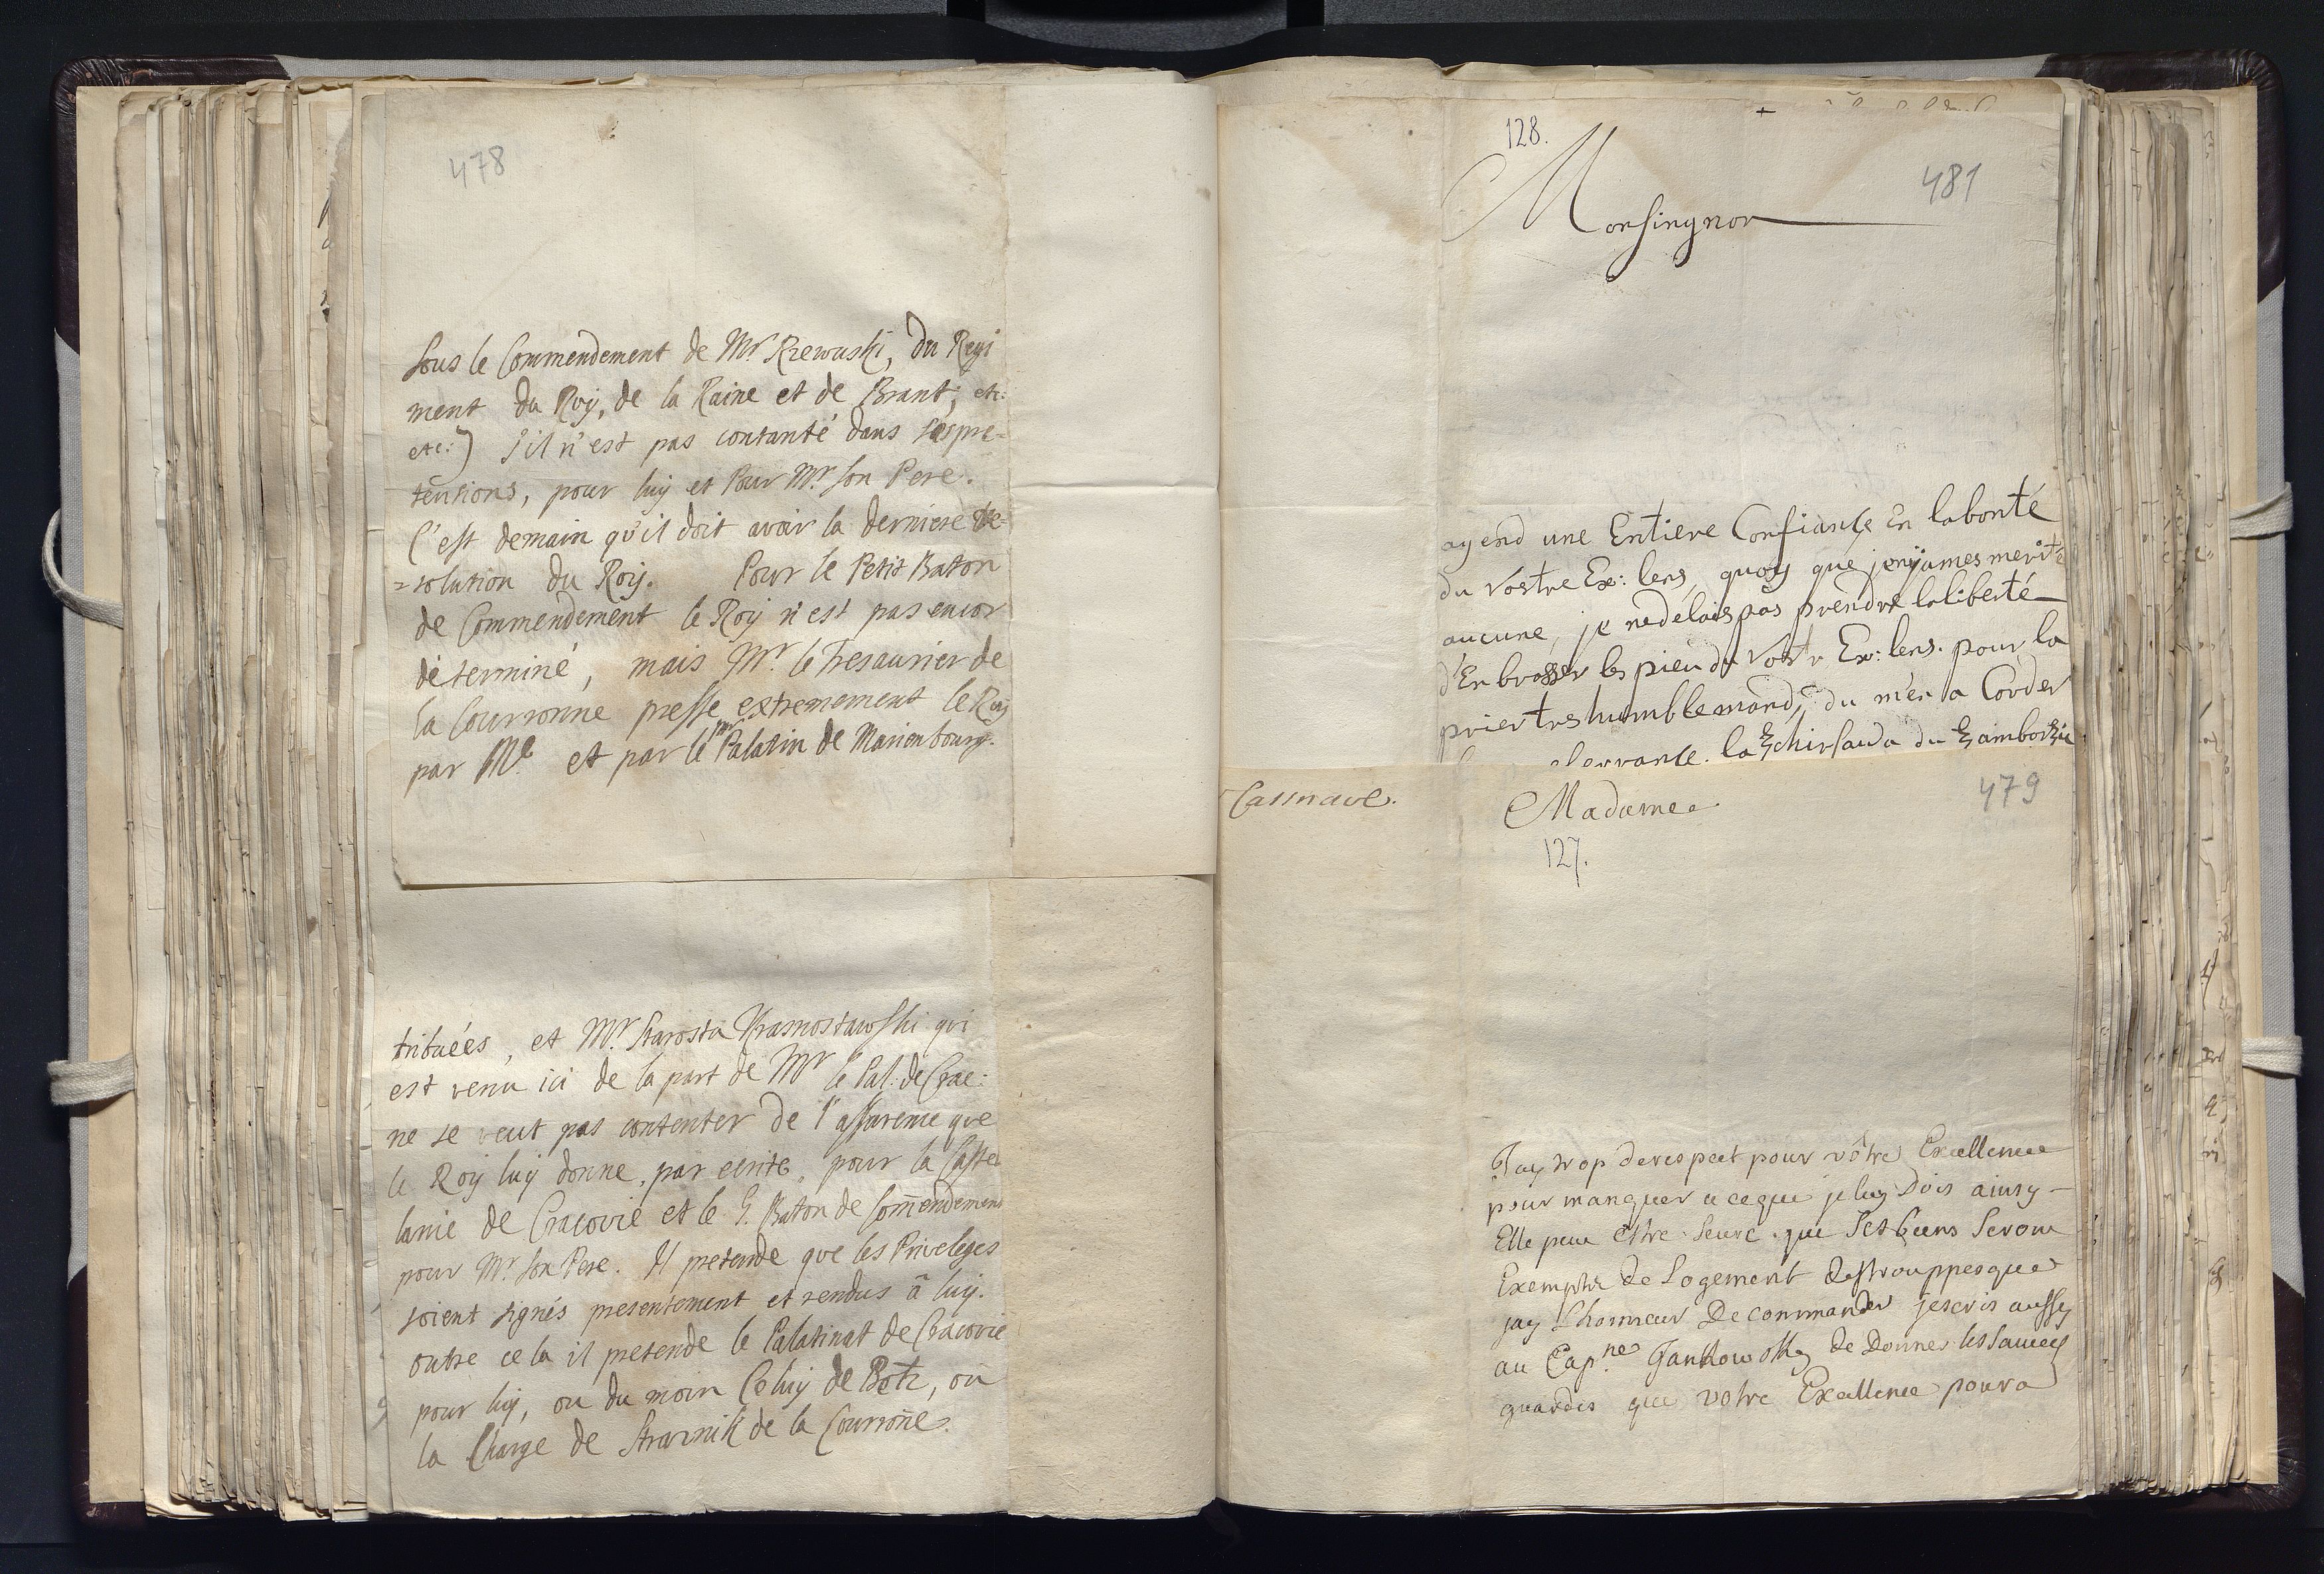 478
sous le Commendement de Mr. Rzewuski, du Regi
ment du Roy, de la Raine et de Brant, etc:
etc:) s'il n'est pas contanté dans sespre-
tensions, pour luy et Pour Mr. son Pere.
C'est demain qu'il doit avoir la derniere Re-
=solution du Roy. Pour le Petit Baton
de Commendement le Roy n'est pas encor
determiné, mais Mr. le Tresaurier de
la Courronne presse extremement le Roy
par Me et par le Palatin de Marienbourg.
tribuées, et Mr. Starosta Krasnostawski qui
est venu ici de la part de Mr le Pal. de Crac:
ne se veut pas contenter de l'assurence que
le Roy luy donne, par ecrite, pour la Castel
lanie de Cracovie et le G. Baton de Com̄endement
pour Mr. son Pere. Il pretende que les Priveleges
soient signés presentement et rendus â luy.
outre ce la il pretende le Palatinat de Cracovie
pour luy, ou du moin Celuy de Betz, ou
la Charge de Straznik de la Courrone.
128.
481
Monsingnor
ayend une Entiere Confianse En labonté
du vostre Ex: lens, quoy que jenyjames merité
aucune, je nedelaispas prendre laliberté
d'En brasser les pieu du Vostr Ex: lens. pour la
prier tres humblemand, du m'en a Corder
la du
Cassnave.
Madame
479
127.
Jay trop derespect pour vôtre Excellence
pour manquer a ceque jeluy Dois ainsy -
Elle peut estre seure que ses biens Seront
Exempts de Logement destrouppesque
jay L'honneur De commander jescris aussy
au Capne de Donner les sauves
guardes que votre Excellence poura